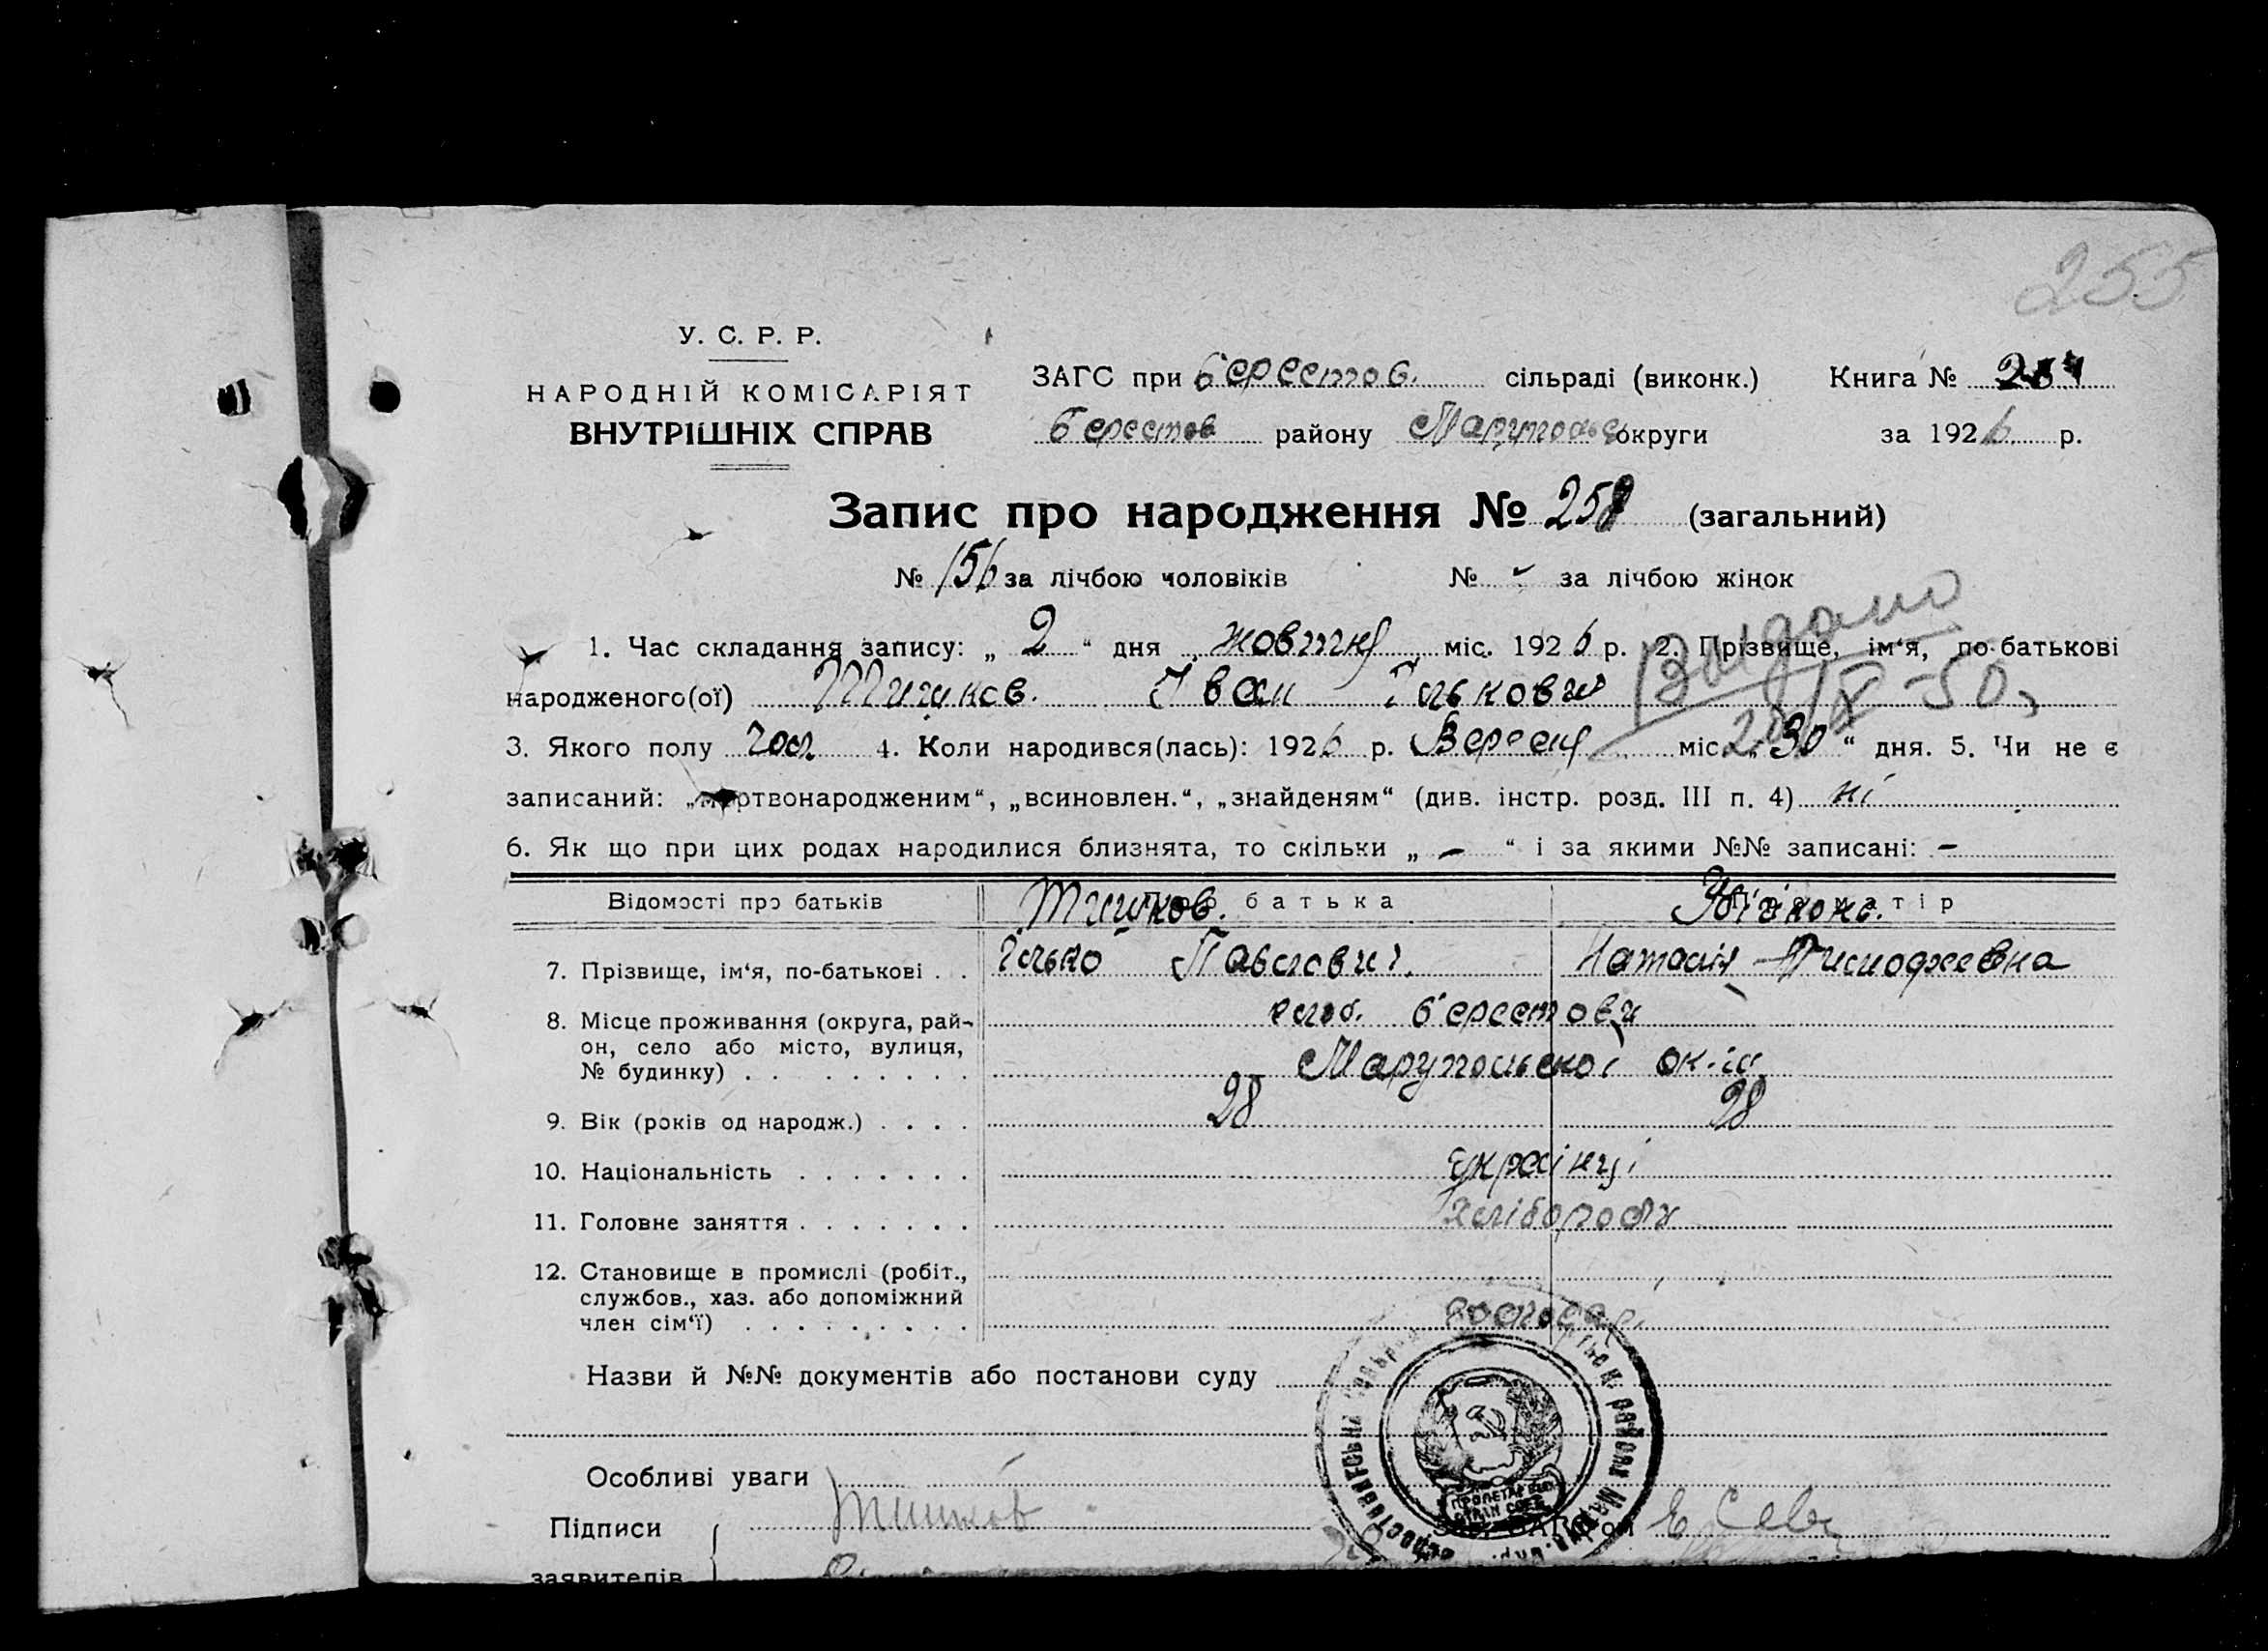 255
У. С. Р. Р.
НАРОДНІЙ КОМІСАРІЯТ
ВНУТРІШНІХ СПРАВ
ЗАГС при Берестов. сільраді (виконк.) Книга №
Берестов району округи за 1926 р.
Запис про народження № 258 (загальний)
№ 156 за лічбою чоловіків № - за лічбою жінок
1. Час складання запису: „ 2 “ дня жовтня міс. 1926 р. 2. Прізвище, ім‘я, по-батькові
Видано
народженого(ої) Тишков. Іван Ількович
20/X-50
3. Якого полу чол 4. Коли народився(лась): 1926 р. Вересня міс. „ 30 “ дня. 5. Чи не є
записаний: „мертвонародженим“, „всиновлен.“, „знайденям“ (див. інстр. розд. III п. 4) ні
6. Як що при цих родах народилися близнята, то скільки „ — “ і за якими №№ записані: —
Відомості про батьків Про батька Про матір
Тишков.
7. Прізвище, ім‘я, по-батькові . . Ілько Павлович. Наталія
8. Місце проживання (округа, рай- слоб. Берестови
он, село або місто, вулиця,
№ будинку) . . . . . . . . . Маріупольської ок.
9. Вік (років од народж.) . . . . 28 28
10. Національність . . . . . . . українці
11. Головне заняття . . . . . . . хлібороби
12. Становище в промислі (робіт.,
службов., хаз. або допоміжний
член сім‘ї) . . . . . . . . . господар.
Назви й №№ документів або постанови суду
Особливі уваги
Підписи Тишков
заявителів